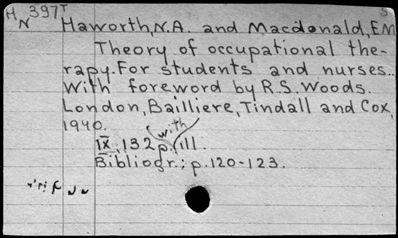 H 397T
N
Haworth, N.A. and Macdonald, E.M
Theory of occupational the-
rapy. For students and nurses..
With foreword by R.S. Woods.
London, Bailliere, Tindall and Cox,
1940.
with
IX, 132 p. ill.
Bibliogr.; p. 120-123.